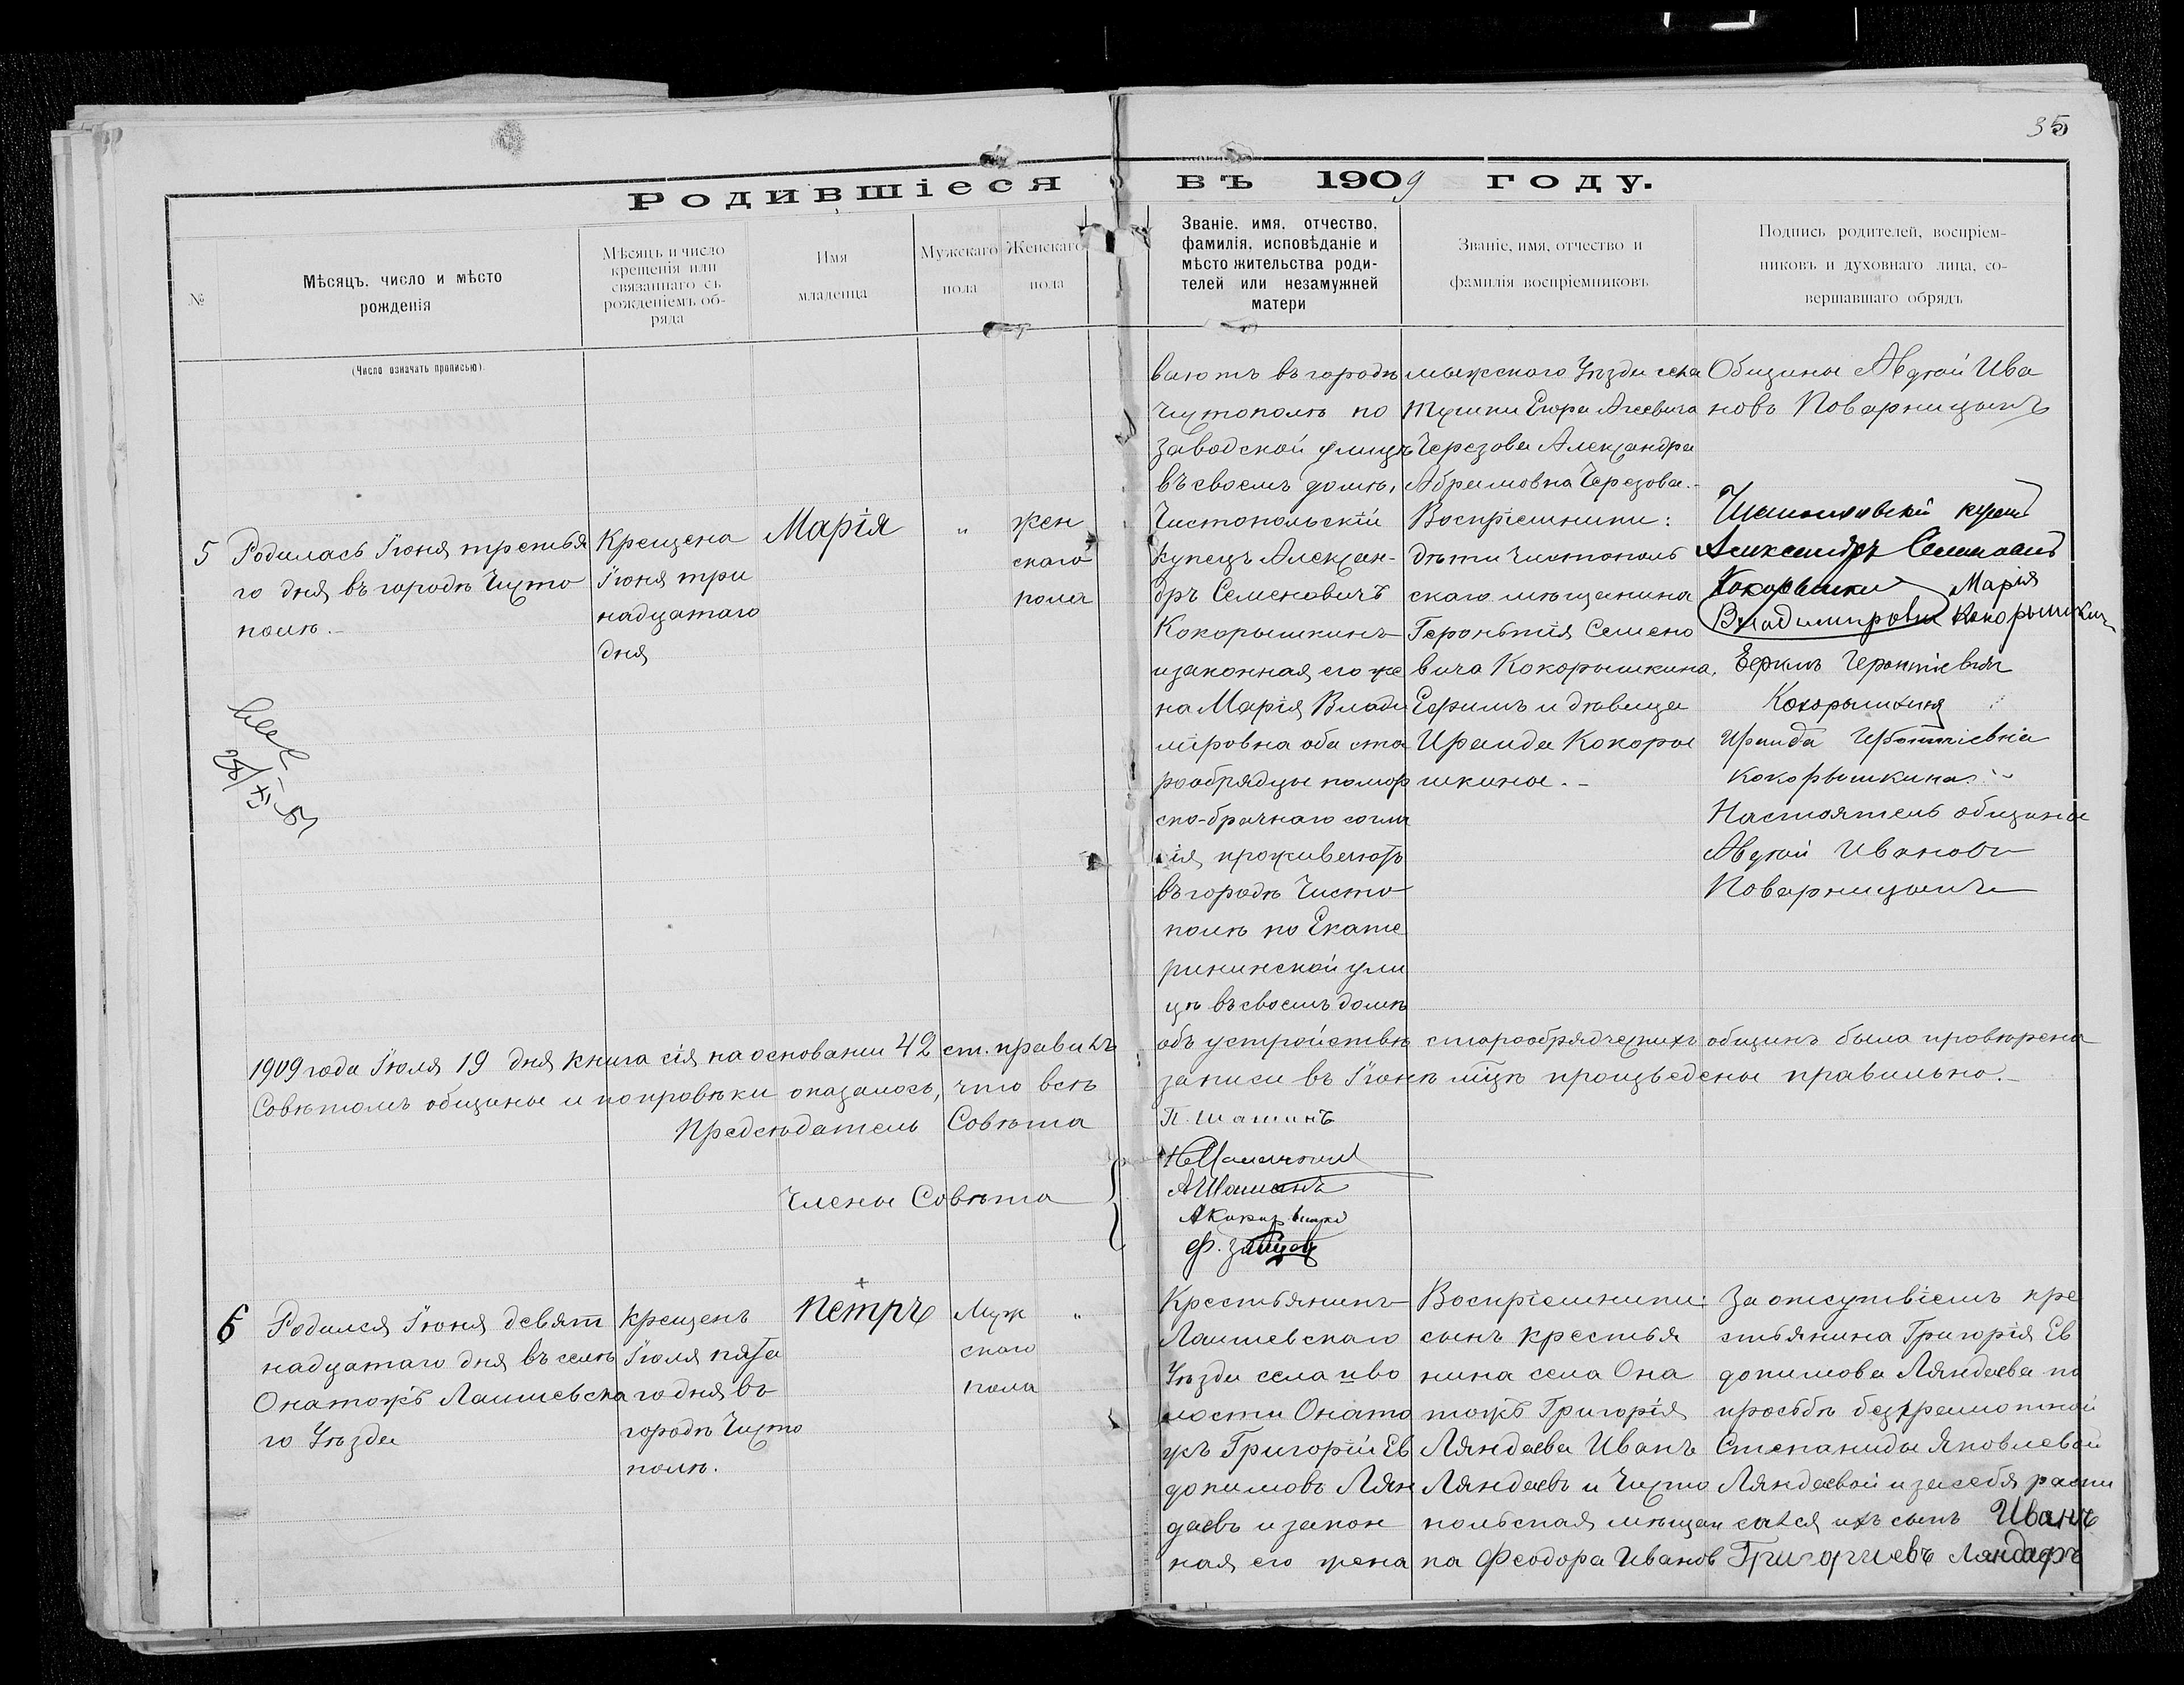 35
Родившіеся въ 1909 году.
№
Мѣсяцъ, число и мѣсто
рожденія
Мѣсяцъ и число
крещенія или
связаннаго съ
рожденіемъ об-
ряда
Имя
младенца
Мужскаго
пола
Женскаго
пола
Званіе, имя, отчество,
фамилія, исповѣданіе и
мѣсто жительства роди-
телей или незамужней
матери
Званіе, имя, отчество и
фамилія воспріемниковъ
Подпись родителей, воспріем-
никовъ и духовнаго лица, со-
вершавшаго обрядъ
(Число означать прописью).
ваютъ въ городѣ
Чистополѣ по
Заводской улицѣ
въ своемъ домѣ.
мыжскаго Уѣзда села
Тушки Егора Агеевича
Черезова Александра
Абрамовна Черезова.-
Общины Авдѣй Ива
новъ Поварницынъ
5
Родилась Іюня третья
го дня въ городѣ Чисто
полѣ.-
Крещена
Іюня три
надцатаго
дня
Марія
"
жен
скаго
пола
Чистопольскій
купецъ Алексан-
дръ Семеновичъ
Кокорышкинъ
и законная его же
на Марія Влади
міровна оба ста
рообрядцы помор
ско-брачнаго согла
сія, проживаютъ
въ городѣ Чисто
полѣ по Екате
рининской ули
цѣ въ своемъ домѣ
Воспріемники:
дѣти Чистополь
скаго мѣщанина
Геронтія Семено
вича Кокорышкина,
Ефимъ и дѣвица
Ираида Кокоры
шкины.-
Александръ Семеновъ
Кокорышкинъ
Марія
Владимировна Кокорышкин
Ефимъ Геронтіевичъ
Кокорышкинъ
Ираида Геронтіевна
Кокорышкина.
Настоятель общины
Авдѣй Ивановъ
Поварницынъ
1909 года Іюля 19 дня книга сія на основаніи 42 ст. правилъ объ устройствѣ старообрядческихъ общинъ была провѣрена
Совѣтомъ общины и по провѣрки оказалось, что всѣ записи въ Іюнѣ м͠цѣ произведены правильно.-
Предсѣдатель Совѣта П. Шашинъ
Члены Совѣта
А Шашинъ
Ф. Зайцевъ
6
Родился Іюня девят
надцатаго дня въ селѣ
Онатожъ Лаишевска
го Уѣзда
Крещенъ
Іюля пята
го дня въ
городѣ Чисто
полѣ.
+
Петръ
Муж
скаго
пола
"
Крестьянинъ
Лаишевскаго
Уѣзда села и во
лости Онато
жъ Григорій Ев
докимовъ Лян
даевъ и закон
ная его жена
Воспріемники:
сынъ крестья
нина села Она
тожъ Григорія
Ляндаева Иванъ
Ляндаевъ и Чисто
польская мѣщан
ка Феодора Иванов
За отсутвіемъ кре
стьянина Григорія Ев
докимова Ляндаева по
просьбѣ безграмотной
Степаниды Яковлевой
Ляндаевой и за себя распи
сался ихъ сынъ Иванъ
Григориевъ Ляндаевъ